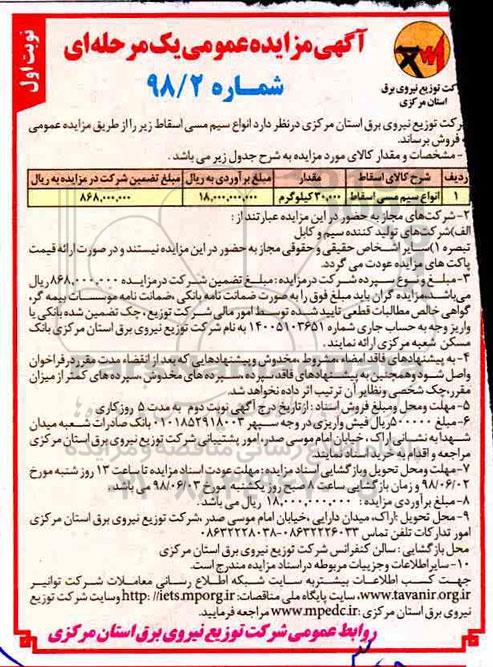 نوبت اول
آگهی مزایده عمومی یک مرحله ای
شماره ۹۸/۲
شرکت توزیع نیروی برق
استان مرکزی
شرکت توزیع نیروی برق استان مرکزی درنظر دارد انواع سیم مسی اسقاط زیر را از طریق مزایده عمومی
به فروش برساند.
- مشخصات و مقدار کالای مورد مزایده به شرح جدول زیر می باشد.
ردیف شرح کالای اسقاط مقدار مبلغ برآوردی به ریال مبلغ تضمین شرکت در مزایده به ریال
۱ انواع سیم مسی اسقاط ۳۰,۰۰۰ کیلوگرم ۱۸,۰۰۰,۰۰۰,۰۰۰ ۸۶۸,۰۰۰,۰۰۰
۲- شرکت های مجاز به حضور در این مزایده عبارتند از :
الف) شرکت های تولید کننده سیم و کابل
تبصره ۱) سایر اشخاص حقیقی و حقوقی مجاز به حضور در این مزایده نیستند و در صورت ارائه قیمت
پاکت های مزایده عودت می گردد.
۳- مبلغ و نوع سپرده شرکت درمزایده : مبلغ تضمین شرکت درمزایده ۸۶۸,۰۰۰,۰۰۰ ریال
می باشد. مزایده گران باید مبلغ فوق را به صورت ضمانت نامه بانکی ، ضمانت نامه موسسات بیمه گر،
گواهی خالص مطالبات قطعی تایید شده توسط امور مالی شرکت توزیع ، چک تضمین شده بانکی یا
واریز وجه به حساب جاری شماره ۱۴۰۰۵۱۰۳۶۵۱ به نام شرکت توزیع نیروی برق استان مرکزی بانک
مسکن شعبه مرکزی ارائه نمایند.
۴- به پیشنهادهای فاقد امضاء، مشروط ، مخدوش و پیشنهادهایی که بعد از انقضاء مدت مقرر در فراخوان
واصل شود و همچنین به پیشنهادهای فاقد سپرده، سپرده های مخدوش، سپرده های کمتر از میزان
مقرر، چک شخصی و نظایر آن ترتیب اثر داده نخواهد شد.
۵- مهلت ومحل ومبلغ فروش اسناد : از تاریخ درج آگهی نوبت دوم به مدت ۵ روز کاری
۶- مبلغ ۵۰۰۰۰۰ ریال فیش واریزی در وجه سپهر ۰۱۰۱۸۵۲۹۱۸۰۰۳ بانک صادرات شعبه میدان
شهدا به نشانی اراک ، خیابان امام موسی صدر، امور پشتیبانی شرکت توزیع نیروی برق استان مرکزی
مراجعه و اقدام به خرید اسناد نمایند.
۷- مهلت ومحل تحویل وبازگشایی اسناد مزایده : مهلت عودت اسناد مزایده تا ساعت ۱۳ روز شنبه مورخ
۹۸/۰۶/۰۲ و زمان بازگشایی ساعت ۸ صبح روز یکشنبه مورخ ۹۸/۰۶/۰۳ می باشد.
۸- مبلغ برآوردی مزایده : ۱۸,۰۰۰,۰۰۰,۰۰۰ ریال می باشد.
۹- محل تحویل :اراک، میدان دارایی ،خیابان امام موسی صدر ،شرکت توزیع نیروی برق استان مرکزی
امور تدارکات تلفن تماس ۰۸۶۳۲۲۲۶۰۳۳-۰۸۶۳۲۲۲۸۰۳۸
محل بازگشایی : سالن کنفرانس شرکت توزیع نیروی برق استان مرکزی
۱۰- سایر اطلاعات و جزییات مربوطه در اسناد مزایده مندرج است.
جهت کسب اطلاعات بیشتر به سایت شبکه اطلاع رسانی معاملات شرکت توانیر
www.tavanir.org.ir، سایت پایگاه ملی مناقصات: http://iets.mporg.ir وسایت شرکت توزیع
نیروی برق استان مرکزی :www.mpedc.ir مراجعه فرمایید.
روابط عمومی شرکت توزیع نیروی برق استان مرکزی